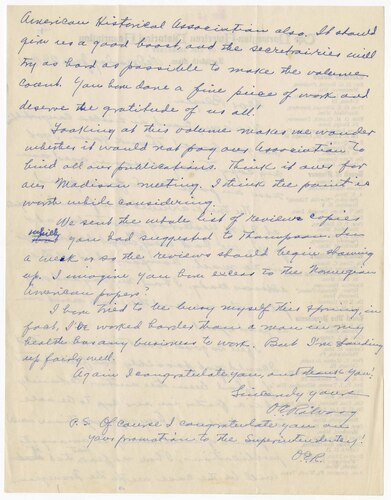 American Historical Association also. It should
give us a good boost, and the secretairies will
try as hard as possible to make the volume
count. You have done a fine piece of work and
deserve the gratitude of us all!
Looking at this volume makes me wonder
whether it would not pay our Association to
bind all our publications. Think it over for
our Madison meeting. I think the point is
worth while considering.
We sent the whole list of reviews copies
which you had suggested to Thompson. In
a week or so the reviews should begin showing
up. I imagine you have excess to the Norwegian
American papers?
I have tried to be busy myself this spring, in
fact, I've worked harder than a man in my
health has any business to work. But I'm standing
up fairly well.
Again I congratulate you, and thank you!
Sincerely yours
P.S. Of course I congratulate you on
your promotion to the Superintendentcy!